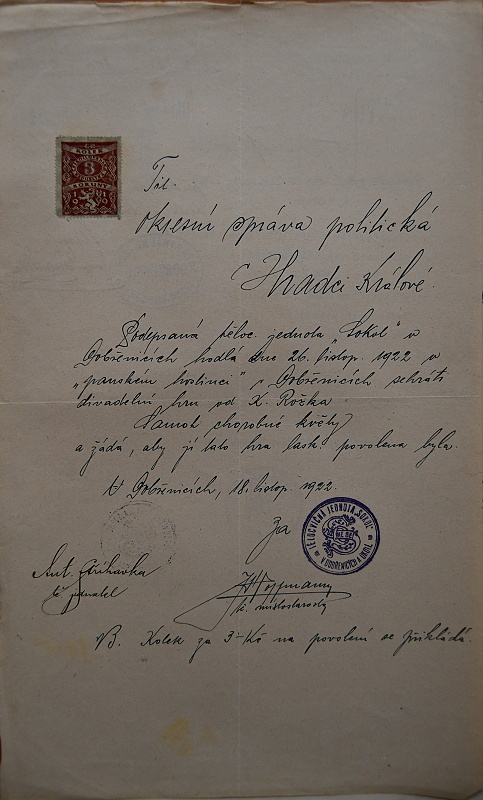 KOLEK
3
KORUNY
Tit.
Okresní správa politická
Hradci Králové.
Podepsaná těloc. jednota „Sokol" v
Dobřenicích hodlá dne 26. listop. 1922 v
„panském hostinci" v Dobřenicích sehráti
divadelní hru od K. Rožka
Samot chorobné květy
a žádá, aby jí tato hra lask. povolena byla.
V Dobřenicích, 18. listop. 1922.
Za
TĚLOCVIČNÁ JEDNOTA „SOKOL" V DOBŘENICÍCH A OKOLÍ
Ant.
t. č. jednatel
Hoffmann
t. č. místostarosta
NB. Kolek za 3 Kč na povolení se přikládá.